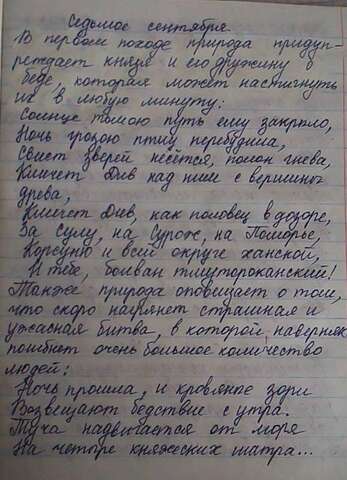 Седьмое сентября.
В первом походе природа предуп-
реждает князя и его дружину о
беде, которая может настигнуть
их в любую минуту.
Солнце тьмою путь им закрыло,
Ночь грозою птиц пробудила,
Свист зверей несётся, полон гнева,
Кличет Див над ними с вершины
древа,
Кличет Див как половец в дозоре,
За Сулу, на Сурож, на Поморье,
Корсуню и всей округе ханской,
И тебе, болван тмутороканский!
Также, природа оповещает о том,
что скоро начнется страшная и
ужасная битва, в которой наверняка
погибнет очень большое количество
людей:
Ночь прошла, и кровяные зори
Возвещают бедствие с утра.
Туча надвигается от моря
На четыре княжеских шатра...